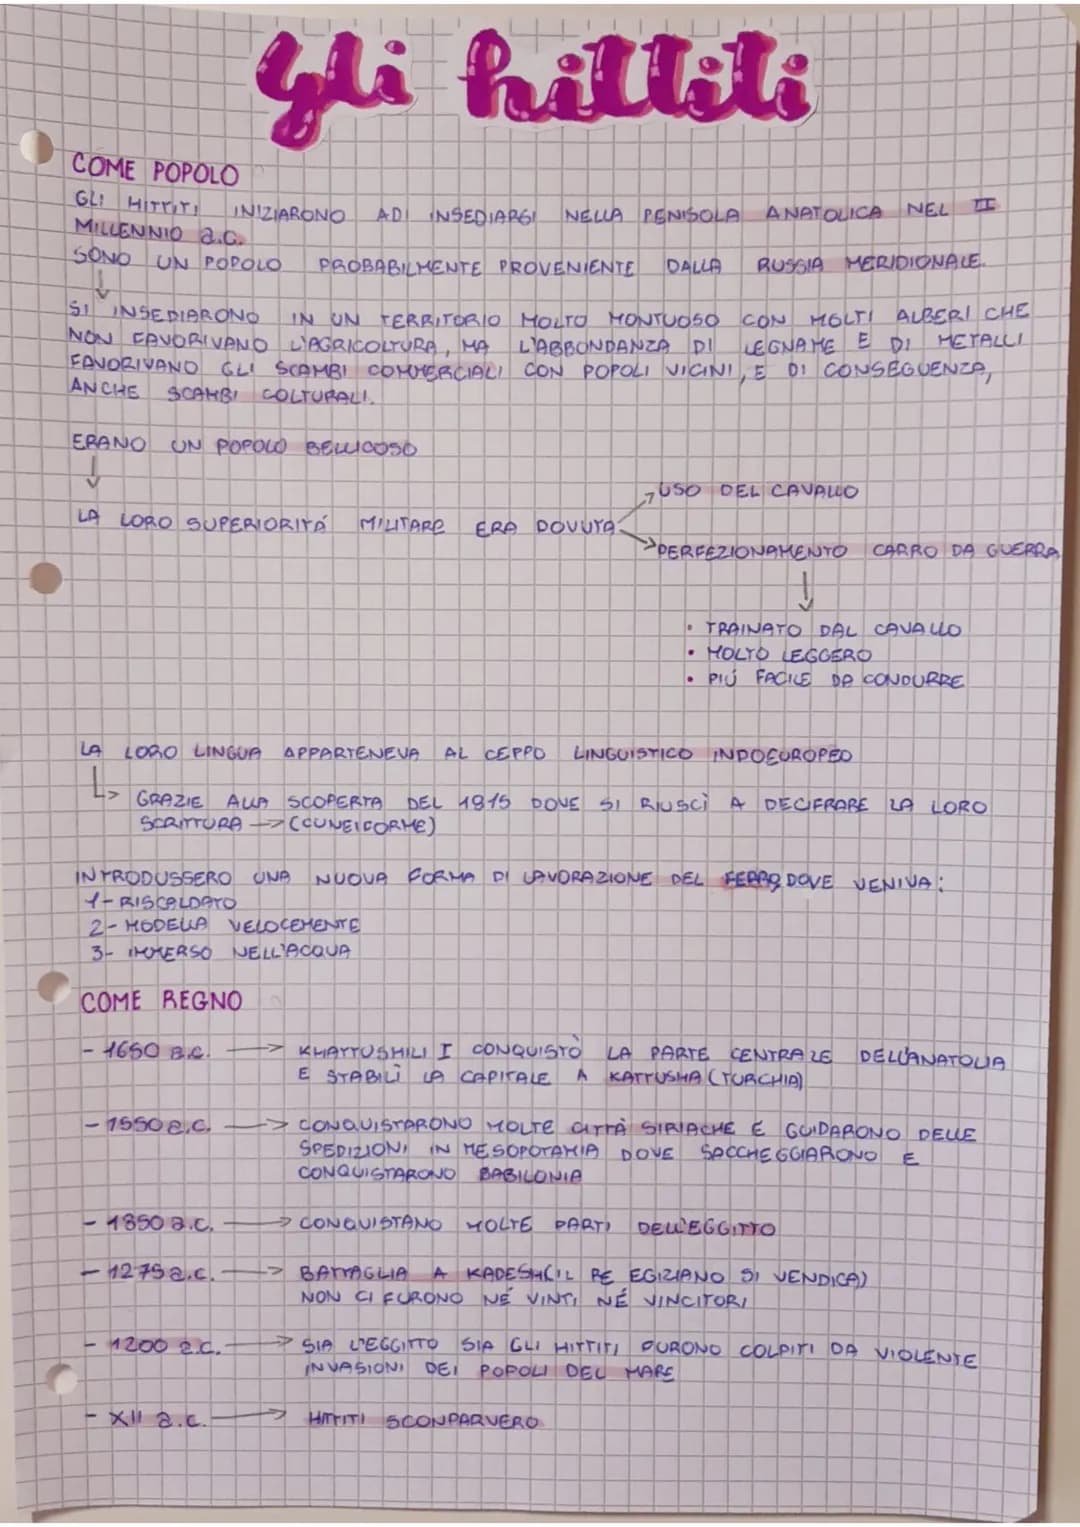 Gli hittiti
COME POPOLO
GLI HITTITI INIZIARONO AD INSEDIARSI NELLA PENISOLA ANATOLICA NEL II
MILLENNIO a.C.
SONO UN POPOLO PROBABILMENTE PROVENIENTE DALLA RUSSIA MERIDIONALE.
SI INSEDIARONO IN UN TERRITORIO MOLTO MONTUOSO CON MOLTI ALBERI CHE
NON FAVORIVANO L'AGRICOLTURA, MA L'ABBONDANZA DI LEGNAME E DI METALLI
FAVORIVANO GLI SCAMBI COMMERCIALI CON POPOLI VICINI, E DI CONSEGUENZA,
ANCHE SCAMBI COLTURALI.
ERANO UN POPOLO BELLICOSO
↓
LA LORO SUPERIORITÁ MILITARE ERA DOVUTA
→ USO DEL CAVALLO
→ PERFEZIONAMENTO CARRO DA GUERRA
↓
• TRAINATO DAL CAVALLO
• MOLTO LEGGERO
• PIÚ FACILE DA CONDURRE
LA LORO LINGUA APPARTENEVA AL CEPPO LINGUISTICO INDOEUROPEO
↳ GRAZIE ALLA SCOPERTA DEL 1915 DOVE SI RIUSCÌ A DECIFRARE LA LORO
SCRITTURA → (CUNEIFORME)
INTRODUSSERO UNA NUOVA FORMA DI LAVORAZIONE DEL FERRO, DOVE VENIVA:
1- RISCALDATO
2- MODELLA VELOCEMENTE
3- IMMERSO NELL'ACQUA
COME REGNO
- 1650 a.C. → KHATTUSHILI I CONQUISTÒ LA PARTE CENTRALE DELL'ANATOLIA
E STABILÌ LA CAPITALE A KATTUSHA (TURCHIA)
- 1550 a.C. → CONQUISTARONO MOLTE CITTÀ SIRIACHE E GUIDARONO DELLE
SPEDIZIONI IN MESOPOTAMIA DOVE SACCHEGGIARONO E
CONQUISTARONO BABILONIA
- 1850 a.C. → CONQUISTANO MOLTE PARTI DELL'EGGITTO
- 1275 a.C. → BATTAGLIA A KADESH (IL RE EGIZIANO SI VENDICA)
NON CI FURONO NÉ VINTI NÉ VINCITORI
- 1200 a.C. → SIA L'EGGITTO SIA GLI HITTITI FURONO COLPITI DA VIOLENTE
INVASIONI DEI POPOLI DEL MARE
- XII a.C. → HITTITI SCONPARVERO